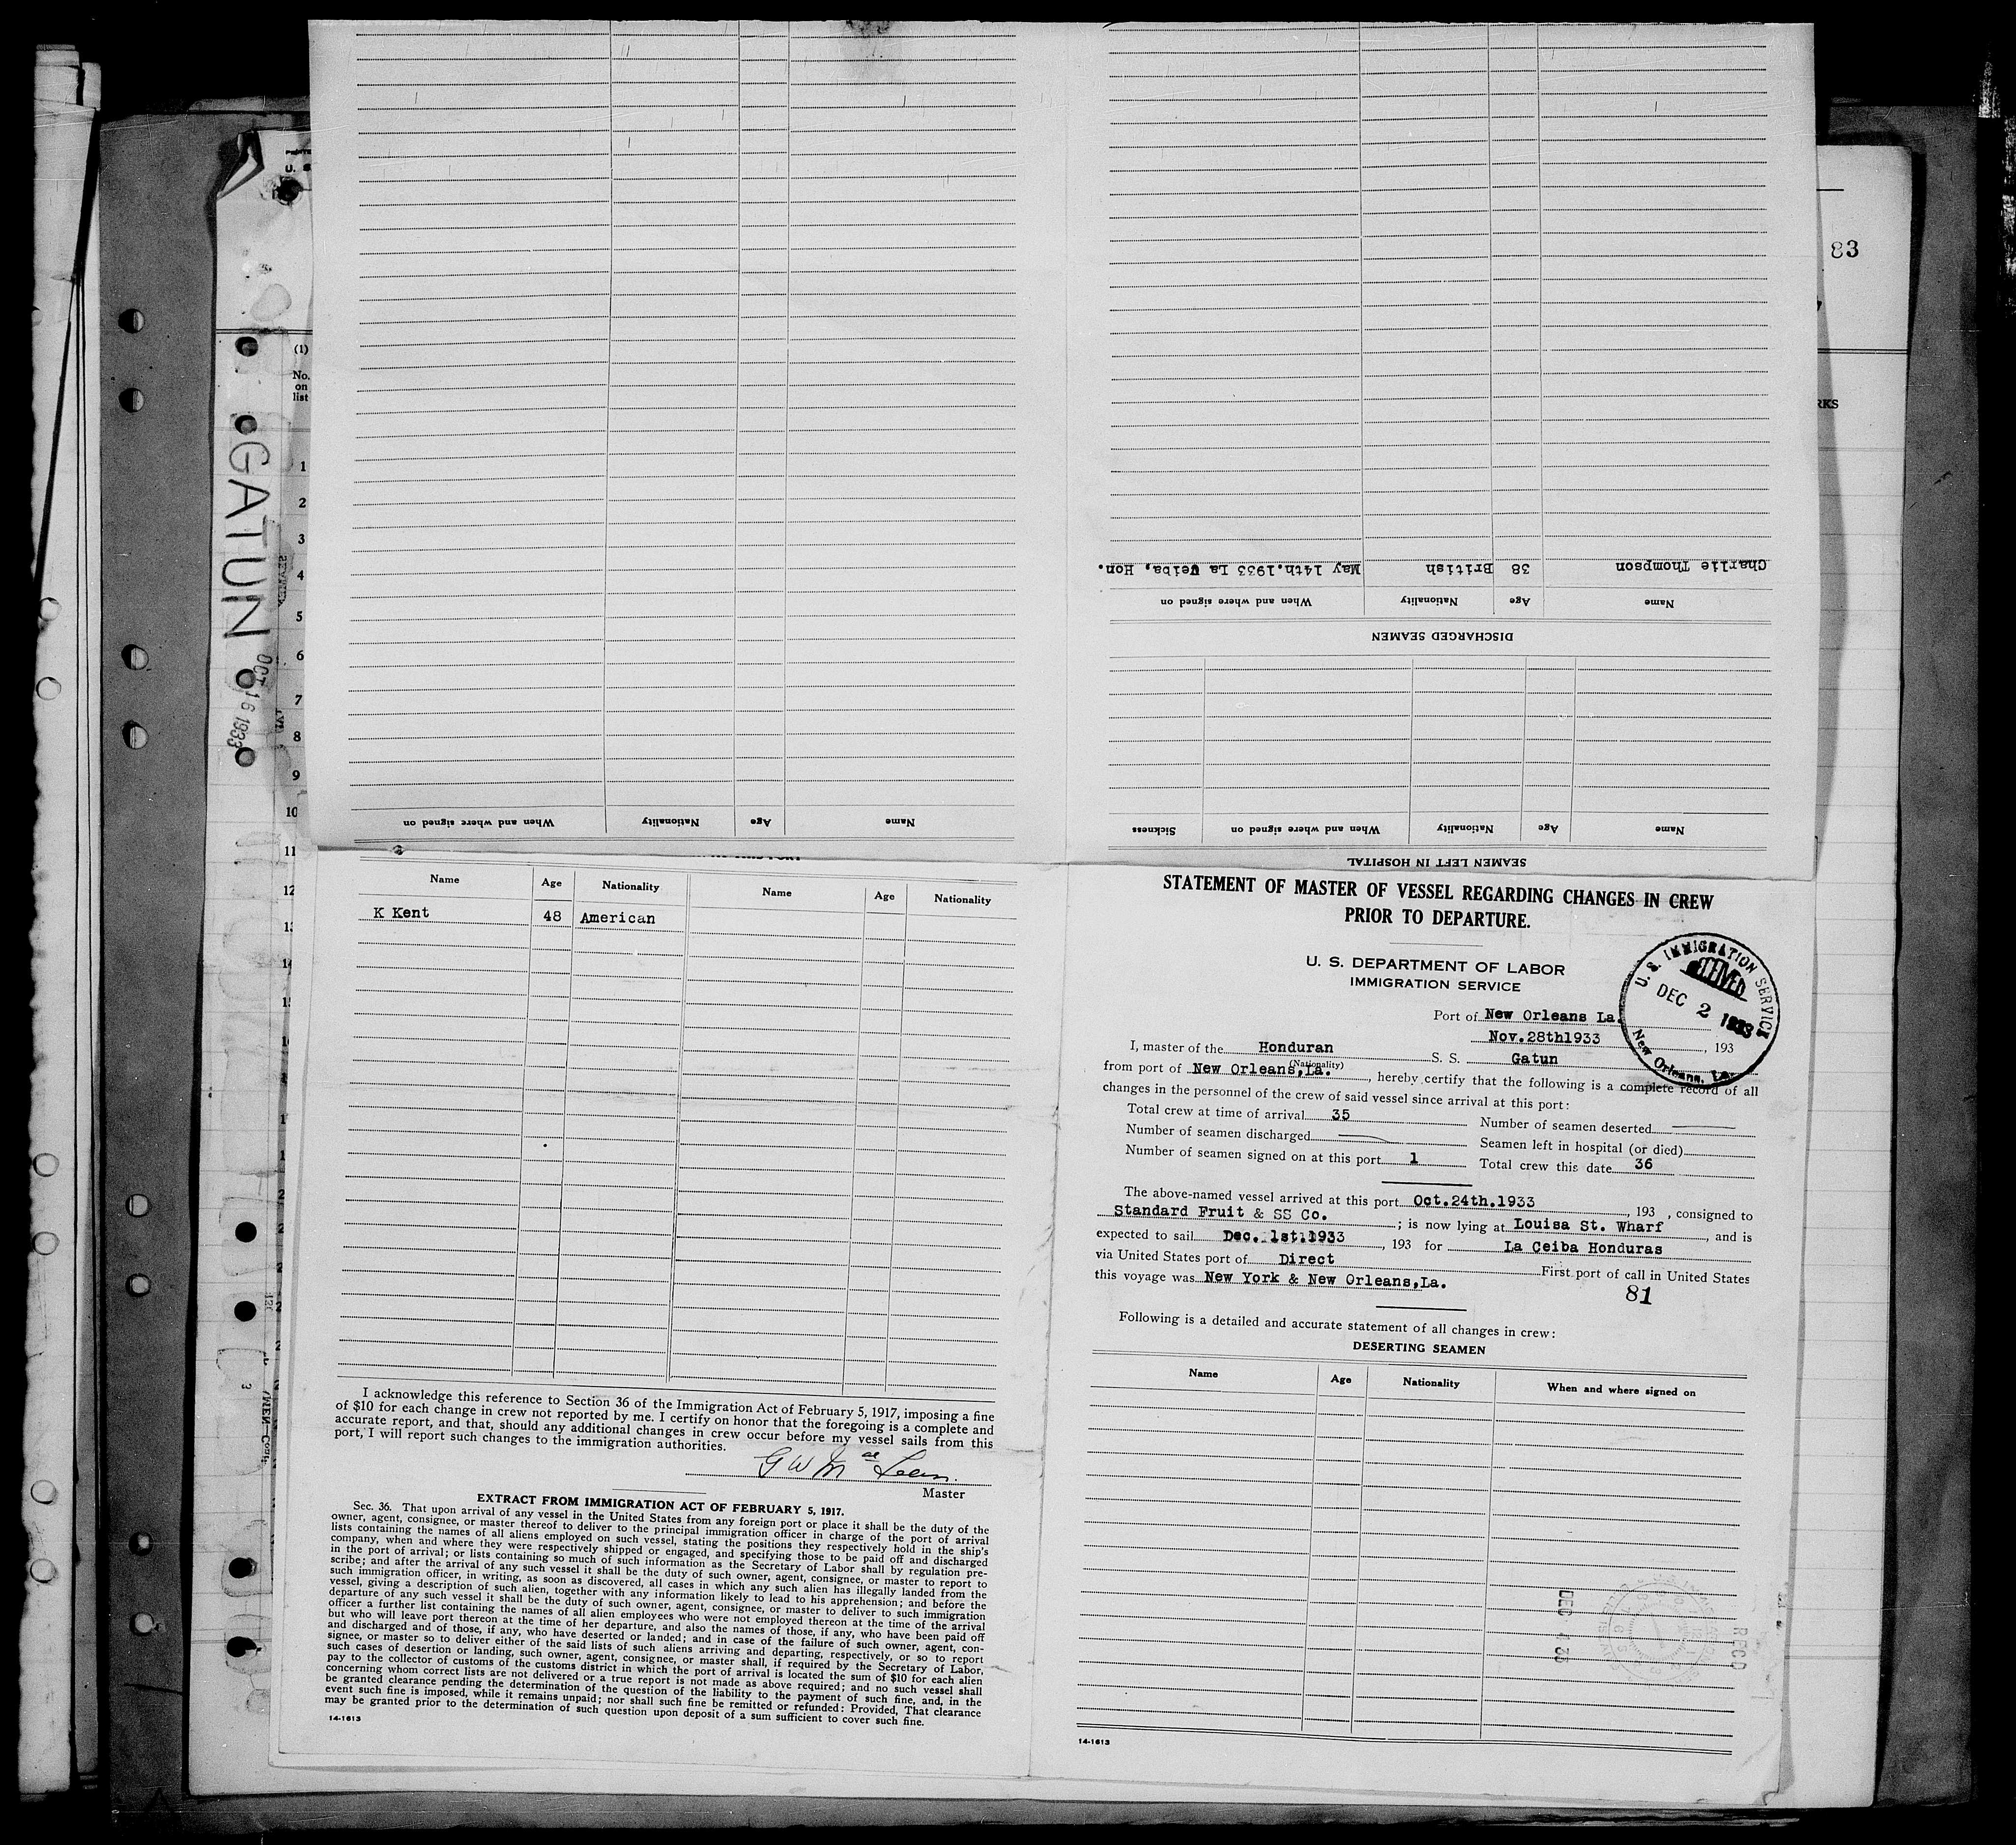 83
RKS
(1)
No.
on
list
1
2
3
4
5
6
7
8
9
10
11
12
GATUN
OCT 16 1933
Charlie Thompson 38 British May 14th.1933 La Ceiba, Hon.
Name Age Nationality When and where signed on
DISCHARGED SEAMEN
Name Age Nationality When and where signed on
Name Age Nationality When and where signed on Sickness
SEAMEN LEFT IN HOSPITAL
Name Age Nationality Name Age Nationality
K Kent 48 American
I acknowledge this reference to Section 36 of the Immigration Act of February 5, 1917, imposing a fine
of $10 for each change in crew not reported by me. I certify on honor that the foregoing is a complete and
accurate report, and that, should any additional changes in crew occur before my vessel sails from this
port, I will report such changes to the immigration authorities.
G W Mac Lean.
Master
EXTRACT FROM IMMIGRATION ACT OF FEBRUARY 5, 1917.
Sec. 36. That upon arrival of any vessel in the United States from any foreign port or place it shall be the duty of the
owner, agent, consignee, or master thereof to deliver to the principal immigration officer in charge of the port of arrival
lists containing the names of all aliens employed on such vessel, stating the positions they respectively hold in the ship's
company, when and where they were respectively shipped or engaged, and specifying those to be paid off and discharged
in the port of arrival; or lists containing so much of such information as the Secretary of Labor shall by regulation pre-
scribe; and after the arrival of any such vessel it shall be the duty of such owner, agent, consignee, or master to report to
such immigration officer, in writing, as soon as discovered, all cases in which any such alien has illegally landed from the
vessel, giving a description of such alien, together with any information likely to lead to his apprehension; and before the
departure of any such vessel it shall be the duty of such owner, agent, consignee, or master to deliver to such immigration
officer a further list containing the names of all alien employees who were not employed thereon at the time of the arrival
but who will leave port thereon at the time of her departure, and also the names of those, if any, who have been paid off
and discharged and of those, if any, who have deserted or landed; and in case of the failure of such owner, agent, con-
signee, or master so to deliver either of the said lists of such aliens arriving and departing, respectively, or so to report
such cases of desertion or landing, such owner, agent, consignee, or master shall, if required by the Secretary of Labor,
pay to the collector of customs of the customs district in which the port of arrival is located the sum of $10 for each alien
concerning whom correct lists are not delivered or a true report is not made as above required; and no such vessel shall
be granted clearance pending the determination of the question of the liability to the payment of such fine, and, in the
event such fine is imposed, while it remains unpaid; nor shall such fine be remitted or refunded: Provided, That clearance
may be granted prior to the determination of such question upon deposit of a sum sufficient to cover such fine.
14-1613
STATEMENT OF MASTER OF VESSEL REGARDING CHANGES IN CREW
PRIOR TO DEPARTURE.
U. S. DEPARTMENT OF LABOR
IMMIGRATION SERVICE
U. S. IMMIGRATION SERVICE
RECEIVED
DEC 2 1933
New Orleans, La.
Port of New Orleans La.
Nov.28th1933, 193
I, master of the Honduran S. S. Gatun
(Nationality)
from port of New Orleans,La., hereby certify that the following is a complete record of all
changes in the personnel of the crew of said vessel since arrival at this port:
Total crew at time of arrival 35 Number of seamen deserted
Number of seamen discharged Seamen left in hospital (or died)
Number of seamen signed on at this port 1 Total crew this date 36
The above-named vessel arrived at this port Oct.24th.1933, 193 , consigned to
Standard Fruit & SS Co. ; is now lying at Louisa St. Wharf, and is
expected to sail Dec. 1st.1933, 193 for La Ceiba Honduras
via United States port of Direct First port of call in United States
this voyage was New York & New Orleans,La.
81
Following is a detailed and accurate statement of all changes in crew:
DESERTING SEAMEN
Name Age Nationality When and where signed on
DEC 4 33
REC'D
14-1613